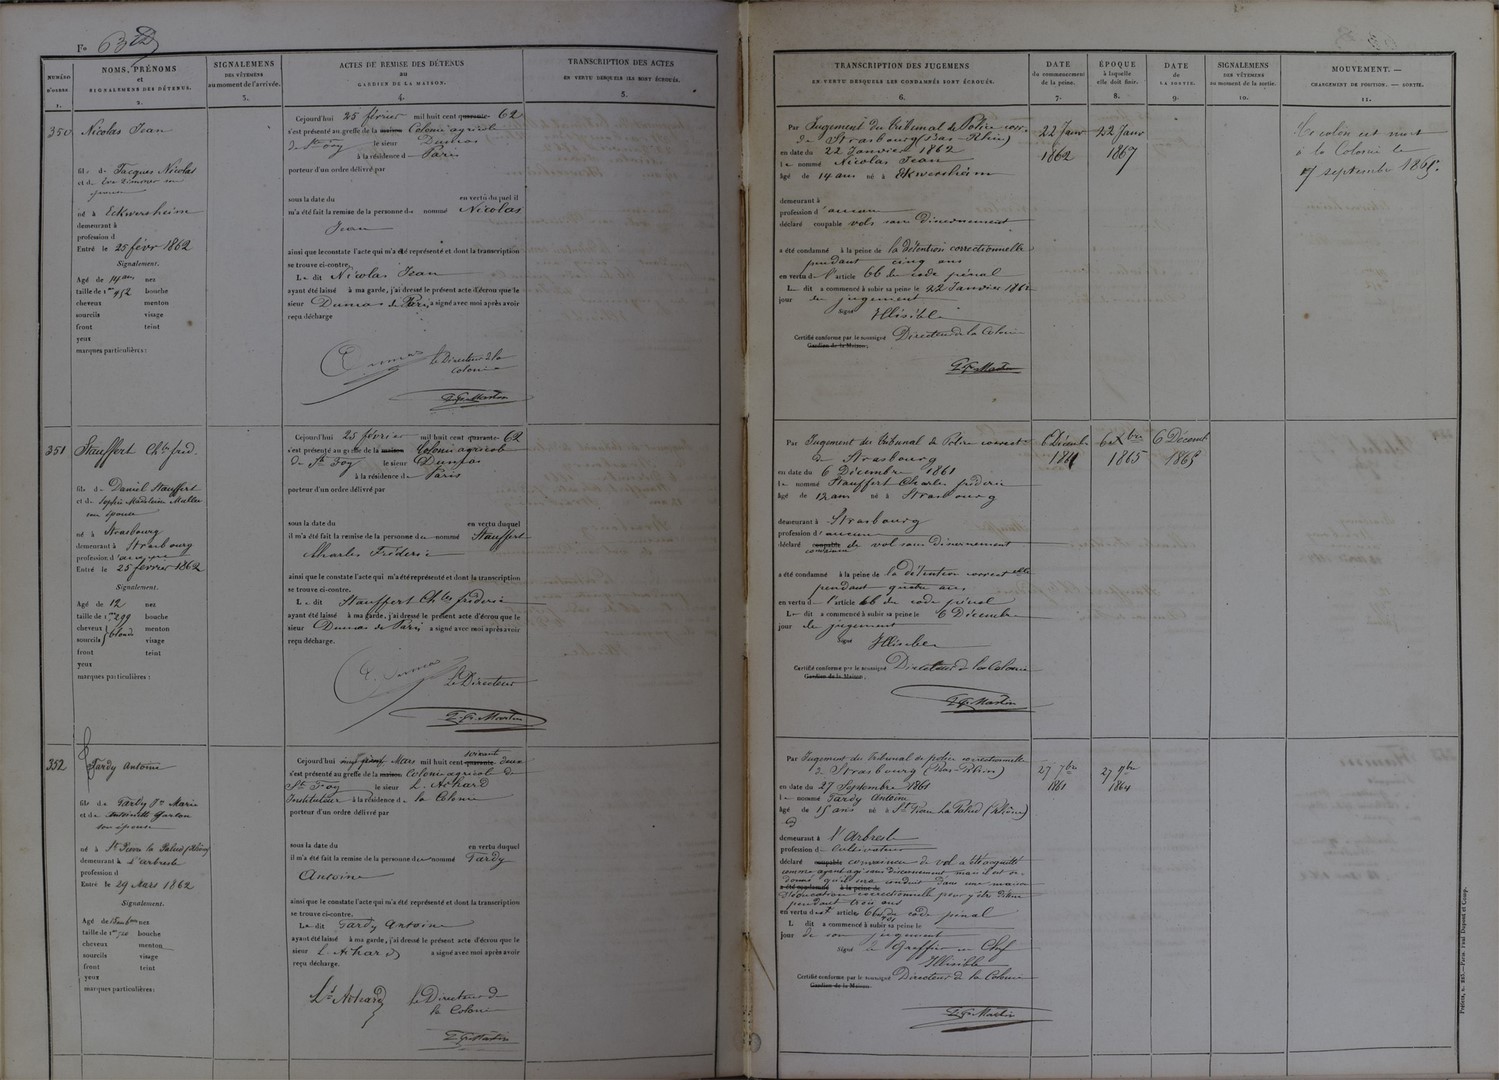 Fo 63
NUMÉRO D'ORDRE 1.
NOMS, PRÉNOMS et SIGNALEMENS DES DÉTENUS. 2.
SIGNALEMENS DES VÊTEMENS au moment de l'arrivée. 3.
ACTES DE REMISE DES DÉTENUS au GARDIEN DE LA MAISON. 4.
TRANSCRIPTION DES ACTES EN VERTU DESQUELS ILS SONT ÉCROUÉS. 5.
TRANSCRIPTION DES JUGEMENS EN VERTU DESQUELS LES CONDAMNÉS SONT ÉCROUÉS. 6.
DATE du commencement de la peine. 7.
ÉPOQUE à laquelle elle doit finir. 8.
DATE de LA SORTIE. 9.
SIGNALEMENS DES VÊTEMENS au moment de la sortie. 10.
MOUVEMENT. — CHANGEMENT DE POSITION. — SORTIE. 11.
350
Nicolas Jean
fils de Jacques Nicolas
et de Eve
né à Eckwersheim
demeurant à
profession d
Entré le 25 févr 1862
Signalement.
Agé de 14 ans nez
taille de 1m 452 bouche
cheveux menton
sourcils visage
front teint
yeux
marques particulières :
Cejourd'hui 25 février mil huit cent quarante 62
s'est présenté au greffe de la maison Colonie agricole
de Ste Foy le sieur Dumas
à la résidence de Paris
porteur d'un ordre délivré par
sous la date du en vertu duquel il
m'a été fait la remise de la personne du nommé Nicolas
Jean
ainsi que le constate l'acte qui m'a été représenté et dont la transcription
se trouve ci-contre.
Le dit Nicolas Jean
ayant été laissé à ma garde, j'ai dressé le présent acte d'écrou que le
sieur Dumas de Paris a signé avec moi après avoir
reçu décharge
Dumas le Directeur de la
Colonie
Martin
Par Jugement du tribunal de Police corr.
de Strasbourg (Bas-Rhin)
en date du 22 Janvier 1862
le nommé Nicolas Jean
âgé de 14 ans né à Ekwersheim
demeurant à
profession d'aucune
déclaré coupable vols sans discernement
a été condamné à la peine de la détention correctionnelle
pendant cinq ans
en vertu de l'article 66 du code pénal
L dit a commencé à subir sa peine le 22 Janvier 1862
jour du jugement
Signé Illisible
Certifié conforme par le soussigné Directeur de la Colonie
Gardien de la Maison.
Martin
22 Janv 1862
22 Janv 1867
Ce colon est mort
à la Colonie le
septembre 1865.
351
Stauffert Chles fréd.
fils de Daniel Stauffert
et de Sophie Madeleine Muller
son épouse
né à Strasbourg
demeurant à Strasbourg
profession d'aucune
Entré le 25 février 1862
Signalement.
Agé de 12 nez
taille de 1m 299 bouche
cheveux blonds menton
sourcils visage
front teint
yeux
marques particulières :
Cejourd'hui 25 février mil huit cent quarante 62
s'est présenté au greffe de la maison Colonie agricole
de Ste Foy le sieur Dumas
à la résidence de Paris
porteur d'un ordre délivré par
sous la date du en vertu duquel
il m'a été fait la remise de la personne du nommé Stauffert
Charles Fréderic
ainsi que le constate l'acte qui m'a été représenté et dont la transcription
se trouve ci-contre.
Le dit Stauffert Chles fréderic
ayant été laissé à ma garde, j'ai dressé le présent acte d'écrou que le
sieur Dumas de Paris a signé avec moi après avoir
reçu décharge.
Dumas
Le Directeur
Martin
Par Jugement du tribunal de Police correct
de Strasbourg
en date du 6 Décembre 1861
le nommé Stauffert Charles fréderic
âgé de 12 ans né à Strasbourg
demeurant à Strasbourg
profession d'aucune
déclaré coupable de vol sans discernement
convaincu
a été condamné à la peine de la détention correctelle
pendant quatre ans
en vertu de l'article 66 du code pénal
Le dit a commencé à subir sa peine le 6 Décembre
jour du jugement
Signé Illisible
Certifié conforme par le soussigné Directeur de la Colonie
Gardien de la Maison.
Martin
6 Décemb 1861
6 Xbre 1865
6 Décemb 1865
352
Tardy Antoine
fils de Tardy Jn Marie
et de Antoinette
son épouse
né à St Pierre la Palud (Rhône)
demeurant à L'arbresle
profession d
Entré le 29 Mars 1862
Signalement.
Agé de 15 ans nez
taille de 1m bouche
cheveux menton
sourcils visage
front teint
yeux
marques particulières :
Cejourd'hui Mars mil huit cent quarante soixante deux
s'est présenté au greffe de la maison Colonie agricole de
Ste Foy le sieur L. Achard
Instituteur à la résidence de la Colonie
porteur d'un ordre délivré par
sous la date du en vertu duquel
il m'a été fait la remise de la personne du nommé Tardy
Antoine
ainsi que le constate l'acte qui m'a été représenté et dont la transcription
se trouve ci-contre.
Le dit Tardy Antoine
ayant été laissé à ma garde, j'ai dressé le présent acte d'écrou que le
sieur L. Achard a signé avec moi après avoir
reçu décharge.
Ls Achard le Directeur de
la Colonie
Martin
Par Jugement du Tribunal de police correctionnelle
de Strasbourg (Bas-Rhin)
en date du 27 Septembre 1861
le nommé Tardy Antoine
âgé de 15 ans né à St Pierre La Palud (Rhône)
demeurant à l'Arbresle
profession de Cultivateur
déclaré coupable convaincu de vol a été acquitté
comme ayant agi sans discernement mais il est or-
donné qu'il sera conduit dans une maison
a été condamné à la peine de
d'éducation correctionnelle pour y être détenu
pendant trois ans
en vertu des articles 66 du code pénal
L dit a commencé à subir sa peine le
jour de son jugement
Signé le Greffier en Chef
Illisible
Certifié conforme par le soussigné Directeur de la Colonie
Gardien de la Maison.
Martin
27 7bre 1861
27 7bre 1864
Poitiers, n. 227.—Paris. Paul Dupont et Comp.